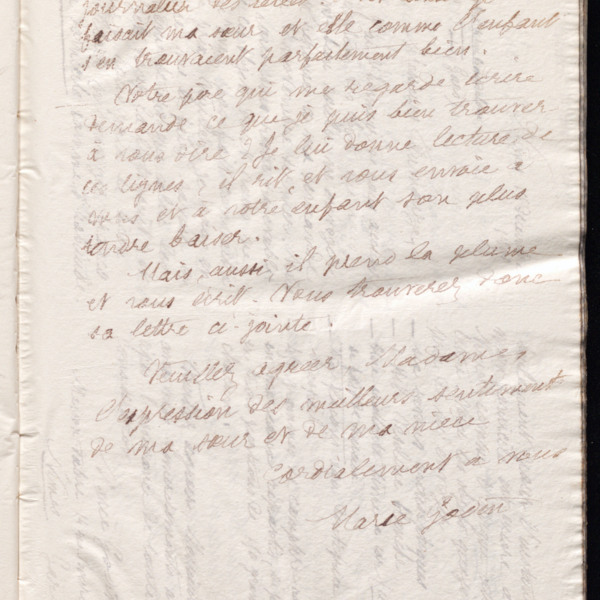 journalier des
faisait ma sœur et elle comme l'enfant
s'en trouvaient parfaitement bien.
Votre père qui me regarde écrire
demande ce que je puis bien trouver
à vous dire ? Je lui donne lecture de
ces lignes, il rit, et vous envoie à
vous et à votre enfant son plus
tendre baiser.
Mais, aussi, il prend la plume
et vous écrit. Vous trouverez donc
sa lettre ci-jointe.
Veuillez agréer, Madame,
l'expression des meilleurs sentiments
de ma sœur et de ma nièce
Cordialement à vous
Marie